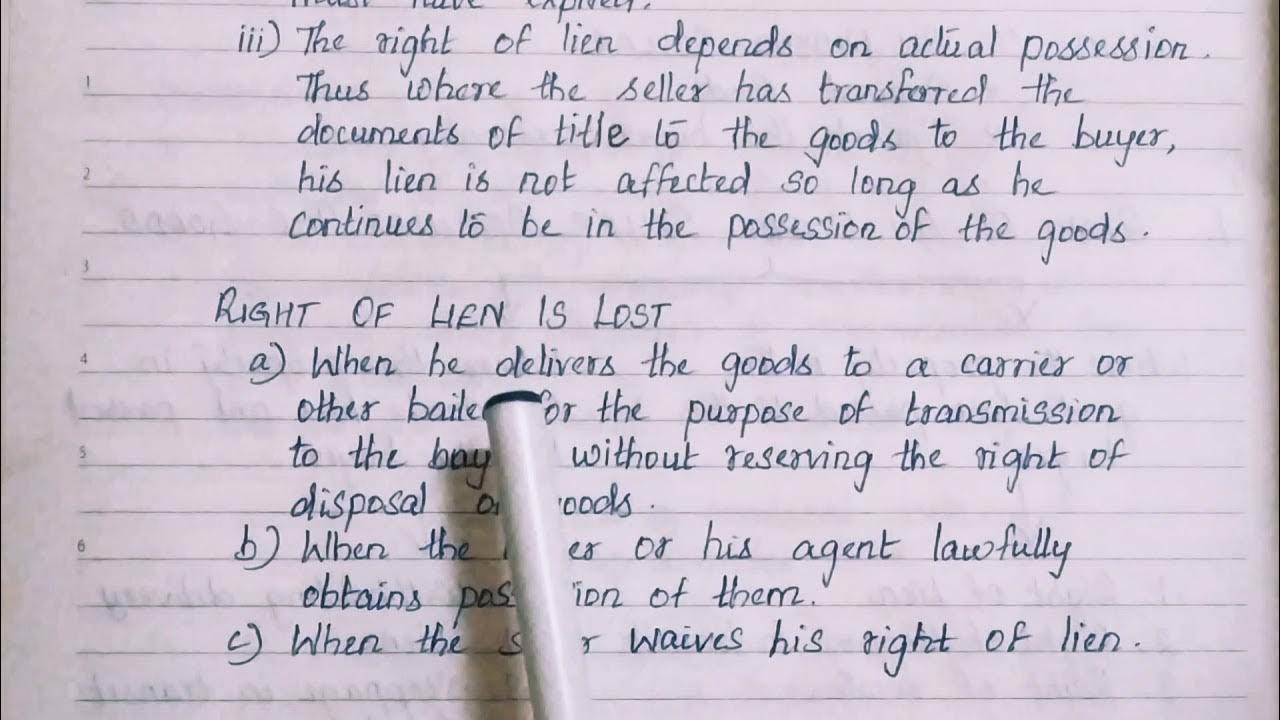 have expired.
iii) The right of lien depends on actual possession.
1 Thus where the seller has transferred the
documents of title to the goods to the buyer,
2 his lien is not affected so long as he
continues to be in the possession of the goods.
3
RIGHT OF LIEN IS LOST
4 a) When he delivers the goods to a carrier or
other for the purpose of transmission
5 to the without reserving the right of
disposal
6 b) When the or his agent lawfully
obtains of them.
c) When the waives his right of lien.